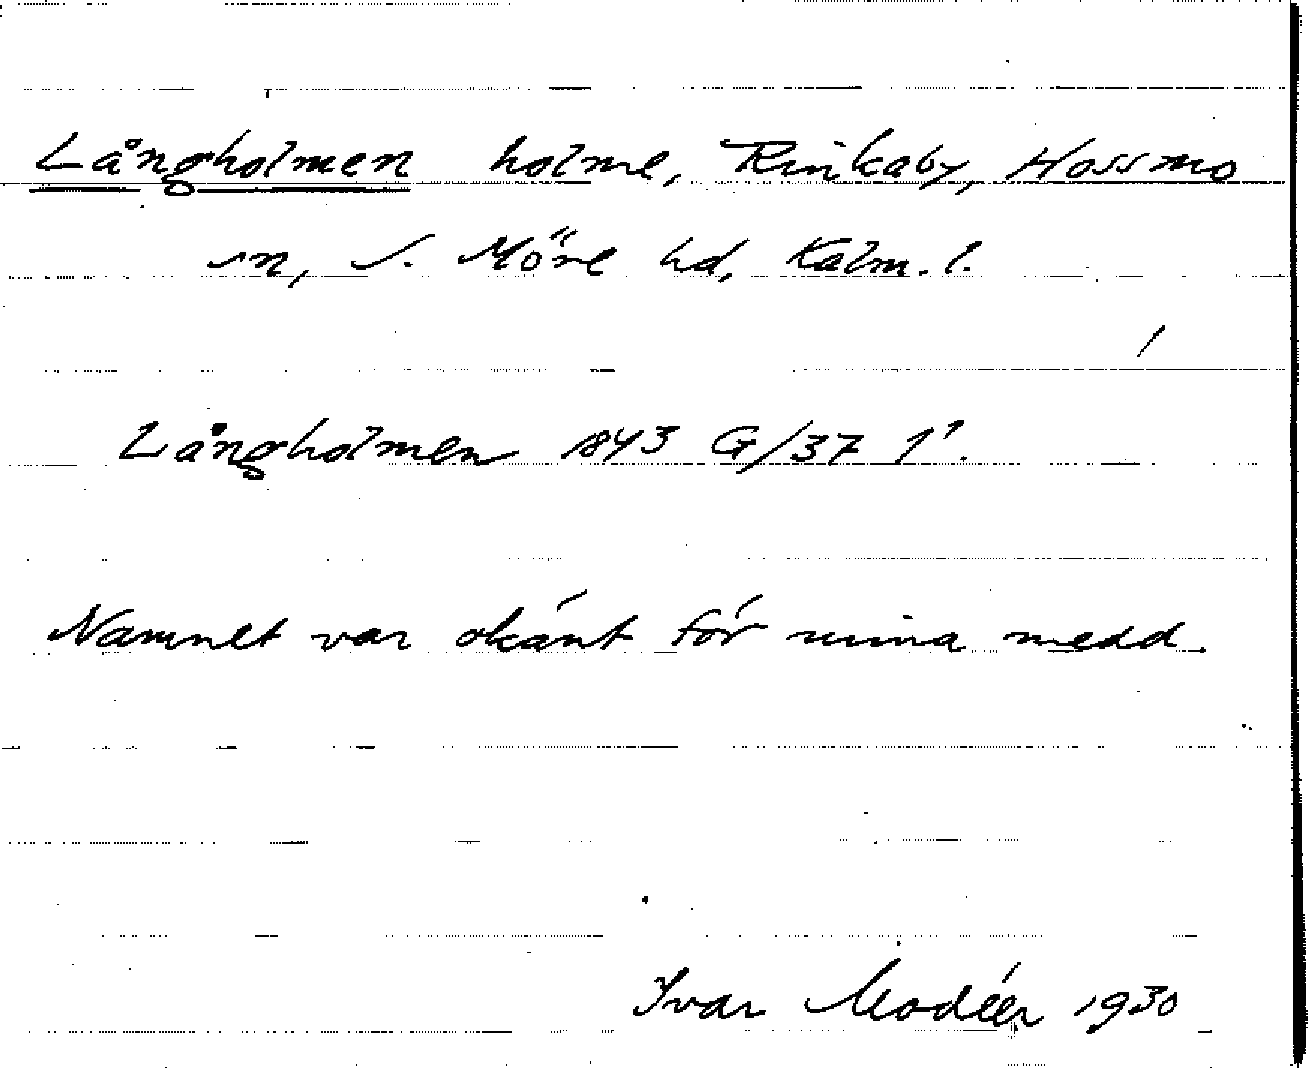 Långholmen holme, Rinkaby, Hossmo
sn, S. Möre hd, Kalm. l.
Långholmen 1843 G/37 1¹.
Namnet var okänt för mina medd.
Ivar Modéer 1930